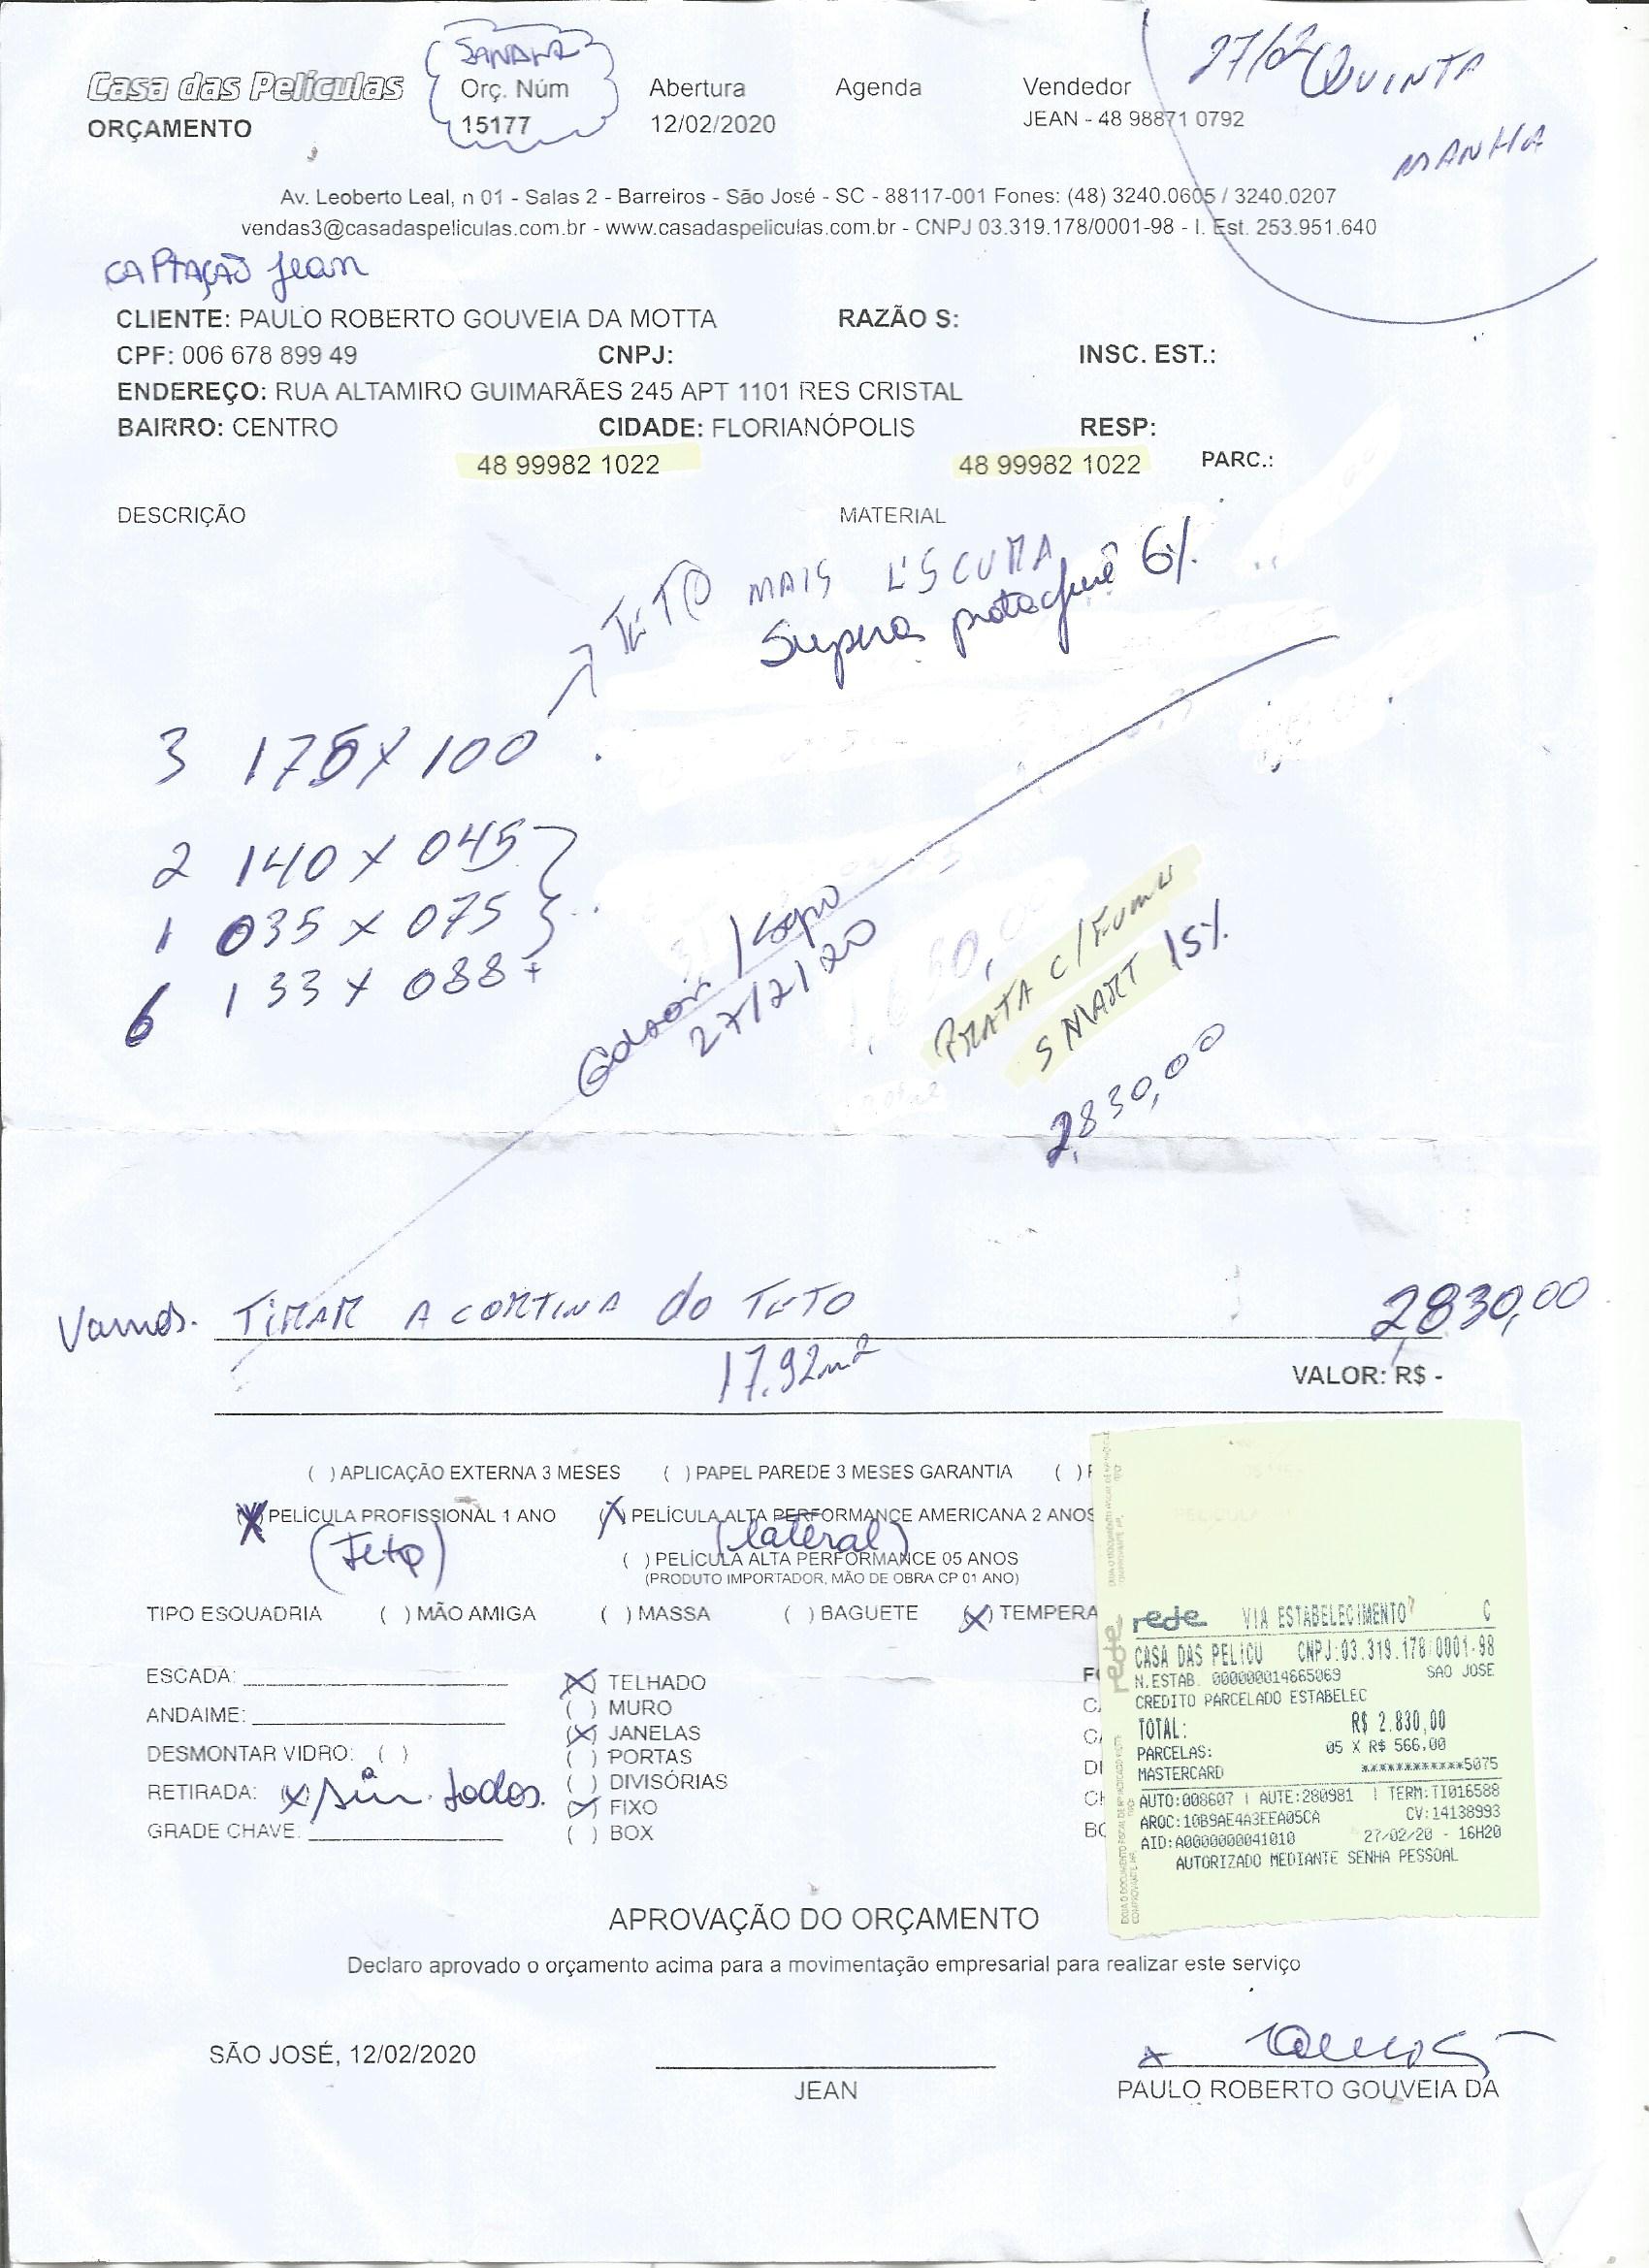 SANAHA
Casa das Películas
Orç. Núm
Abertura
Agenda
Vendedor
27/02 QUINTA
ORÇAMENTO
15177
12/02/2020
JEAN - 48 98871 0792
MANHA
Av. Leoberto Leal, n 01 - Salas 2 - Barreiros - São José - SC - 88117-001 Fones: (48) 3240.0605 / 3240.0207
vendas3@casadaspeliculas.com.br - www.casadaspeliculas.com.br - CNPJ 03.319.178/0001-98 - I. Est. 253.951.640
CAPTAÇÃO Jean
CLIENTE: PAULO ROBERTO GOUVEIA DA MOTTA RAZÃO S:
CPF: 006 678 899 49 CNPJ: INSC. EST.:
ENDEREÇO: RUA ALTAMIRO GUIMARÃES 245 APT 1101 RES CRISTAL
BAIRRO: CENTRO CIDADE: FLORIANÓPOLIS RESP:
48 99982 1022 48 99982 1022 PARC.:
DESCRIÇÃO MATERIAL
TETO MAIS ESCURA
6%
3 175 X 100
2 140 X 045
1 035 X 075
6 133 X 088
27/2/20
PRATA C/ FUME
SMART 15%
2.830,00
Vamos. TIRAR A CORTINA do TETO 2.830,00
17.92m2
VALOR: R$ -
( ) APLICAÇÃO EXTERNA 3 MESES ( ) PAPEL PAREDE 3 MESES GARANTIA ( )
(X) PELÍCULA PROFISSIONAL 1 ANO (X) PELÍCULA ALTA PERFORMANCE AMERICANA 2 ANOS
(Teto) (lateral)
( ) PELÍCULA ALTA PERFORMANCE 05 ANOS
(PRODUTO IMPORTADOR, MÃO DE OBRA CP 01 ANO)
TIPO ESQUADRIA ( ) MÃO AMIGA ( ) MASSA ( ) BAGUETE (X) TEMPERA
ESCADA:
ANDAIME:
DESMONTAR VIDRO: ( )
RETIRADA: (X) sim. todos.
GRADE CHAVE:
(X) TELHADO
( ) MURO
(X) JANELAS
( ) PORTAS
( ) DIVISÓRIAS
(X) FIXO
( ) BOX
rede VIA ESTABELECIMENTO C
CASA DAS PELICU CNPJ:03.319.178/0001-98
N.ESTAB. 000000014665069 SAO JOSE
CREDITO PARCELADO ESTABELEC
TOTAL: R$ 2.830,00
PARCELAS: 05 X R$ 566,00
MASTERCARD ************5075
AUTO:008607 | AUTE:280981 | TERM:TI016588
AROC:10B9AE4A3EEA05CA CV:14138993
AID:A0000000041010 27/02/20 - 16H20
AUTORIZADO MEDIANTE SENHA PESSOAL
APROVAÇÃO DO ORÇAMENTO
Declaro aprovado o orçamento acima para a movimentação empresarial para realizar este serviço
SÃO JOSÉ, 12/02/2020
JEAN
PAULO ROBERTO GOUVEIA DA